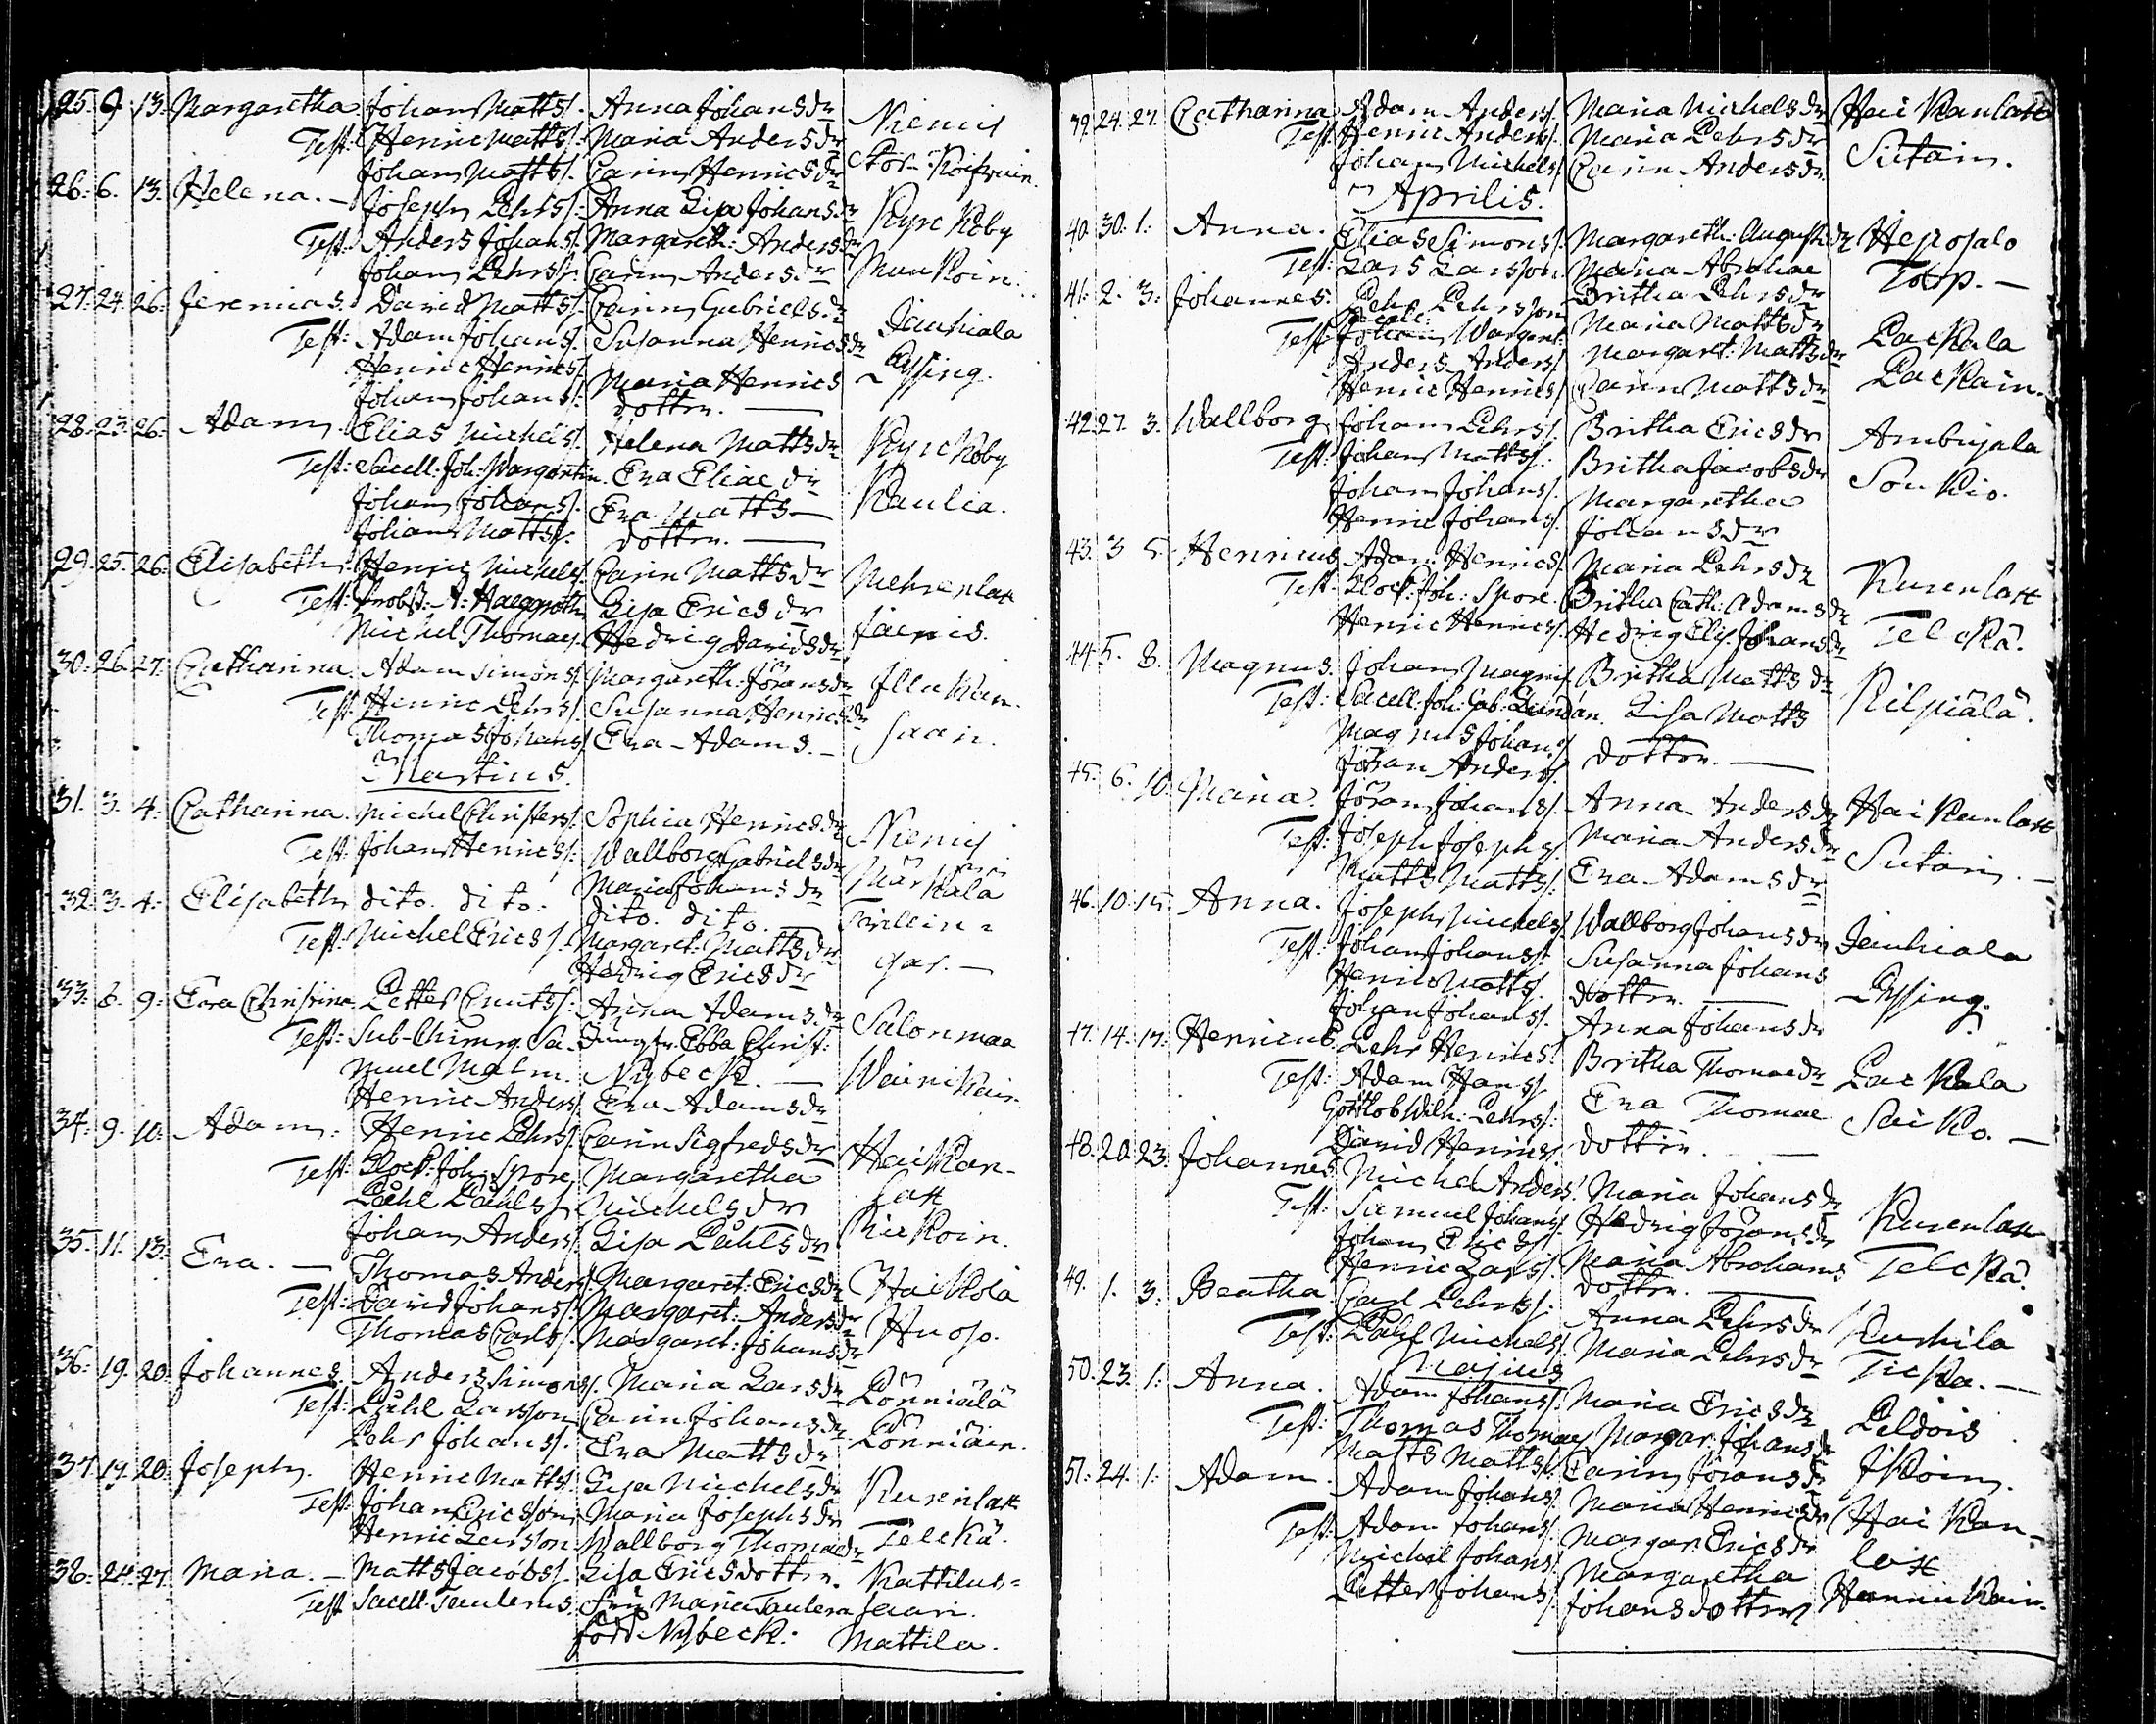 25. 9. 13. Margaretha Johan Matts/. Anna Johansdr Niemis
Test: Henric Matts/. Maria Andersdr Stor-
Johan Matts/. Carin Henricsdr
26. 6. 13. Helena. Joseph Pehrs/. Anna Lisa Johansdr Kyrckoby
Test: Anders Johans/. Margareth: Andersdr Muukoin.
Johan Pehrs/. Carin Andersdr
27. 24. 26. Jeremias. David Matts/. Carin Gabrielsdr Jauhiala
Test: Adam Johans/. Susanna Henricsdr Pyssing.
Henric Henrics/. Maria Henrics
Johan Johans/. dotter.
28. 23. 26. Adam Elias Michels/. Helena Mattsdr Kyrckoby
Test: Sacell: Joh: Wargentin. Eva Eliae dr Kaulia.
Johan Johans/. Eva Matts
Johan Matts/. dotter.
29. 25. 26. Elisabeth Henric Michels/. Carin Mattsdr Mehrenlax
Test: Probst: A: Haeggroth Lisa Ericsdr
Michel Thomae/. Hedvig Davidsdr
30. 26. 27. Catharina. Adam Simons/. Margareth: Jöransdr
Test. Henric Pehrs/. Susanna Henricsdr
Thomas Johans/. Eva Adams.
Martius.
31. 3. 4. Catharina. Michel Christers/. Sophia Henricsdr Niemis
Test: Johan Henrics/. Wallborg Gabrielsdr
Maria Johansdr
32. 3. 4. Elisabeth dito. dito. dito. dito. Twillin-
Test: Michel Erics/. Margaret: Mattsdr gar.
Hedvig Ericsdr
33. 6. 9. Eva Christina Petter Cnuts/. Anna Adamsdr Salonmaa
Test: Sub-Chirurg. Sa- Jungfr. Ebba Christ: Wainikain
muel Malm. Nybeck.
Henric Anders/. Eva Adamsdr
34. 9. 10. Adam. Henric Pehrs/. Carin Sigfredsdr Haikan-
Test: Klock: Joh: Spore, Margaretha lax
Påhl Påhls/. Michelsdr Kirkoin.
Johan Anders/. Lisa Påhlsdr
35. 11. 13. Eva. Thomas Anders/. Margaret: Ericsdr Haikola
Test: David Johans/. Margaret: Andersdr Huoso.
Thomas Carls/. Margaret: Johansdr
36. 19. 20. Johannes. Anders Simons/. Maria Larsdr Pönniälä
Test: Påhl Larsson Carin Johansdr Pönniäin.
Pehr Johans/. Eva Mattsdr
37. 19. 20. Joseph. Henric Matts/. Lisa Michelsdr Kurenlax
Test: Johan Ericsson Maria Josephsdr Telckä.
Henric Larsson Wallborg Thomaedr
38. 24. 27. Maria. Matts Jacobs/. Lisa Ericsdotter. Kattilus-
Test Sacell: Taulerus. Fru Maria Taulera saari.
född Nybeck. Mattila.
39. 24. 27. Catharina Adam Anders/. Maria Michelsdr Haikanlax
Test: Henric Anders/. Maria Pehrsdr Sutain.
Johan Michels/. Carin Andersdr
Aprilis.
40. 30. 1. Anna. Elias Simons/. Margareth: Augustidr Heposalo
Test: Lars Larsson Maria Abrahae
41. 2. 3. Johannes. Pehr Pehrsson Britha Pehrsdr Packala
Test: Johan Wargent. Maria Mattsdr Packain.
Anders Anders/. Margaret: Mattsdr
Henric Henrics/. Carin Mattsdr
42. 27. 3. Wallborg Johan Pehrs/. Britha Ericsdr Ambujala
Test: Johan Matts/. Britha Jacobsdr Soukio.
Johan Johans/. Margaretha
Henric Johans/. Johansdr
43. 3. 5. Henricus Adam Henrics/. Maria Pehrsdr Kurenlax
Test: Klock: Joh: Spore. Britha Cath: Adamsdr Telckä.
Henric Henrics/. Hedvig Elis. Johansdr
44. 5. 8. Magnus. Johan Magni/. Britha Mattsdr Kilpiälä.
Test: Sacell: Joh: Gab: Lundán. Lisa Matts
Magnus Johans/. dotter.
Jöran Anders/.
45. 6. 10. Maria. Jöran Johans/. Anna Andersdr Haikanlax
Test: Joseph Josephs/. Maria Andersdr Sutain.
Matts Matts/. Eva Adamsdr
46. 10. 15. Anna. Joseph Michels/. Wallborg Johansdr Jauhiala
Test: Johan Johans/. Susanna Johans Pyssing.
Henric Matts/. dotter.
Johan Johans/.
47. 14. 17. Henricus. Pehr Henrics/. Anna Johansdr Packala
Test: Adam Hans/. Britha Thomaedr Saiko.
Gottlob Wilh: Pehrs/. Eva Thomae
David Henrics/. dotter.
48. 20. 23. Johannes. Michel Anders/. Maria Johansdr Kurenlax
Test: Samuel Johans/. Hedvig Jöransdr Telckä.
Johan Erics/. Maria Abrahams
Henric Lars/. dotter.
49. 1. 3. Beatha Carl Pehrs/. Anna Pehrsdr
Test: Påhl Michels/. Maria Pehrsdr
Majus
50. 23. 1. Anna. Adam Johans/. Maria Ericsdr Peldois
Test: Thomas Thomae/. Margar: Johansdr
Matts Matts/. Carin Jöransdr
51. 24. 1. Adam. Adam Johans/. Maria Henricsdr Haikan-
Test: Adam Johans/. Margar: Ericsdr lax
Michel Johans/. Margaretha Hannukain.
Petter Johans/. Johansdotter